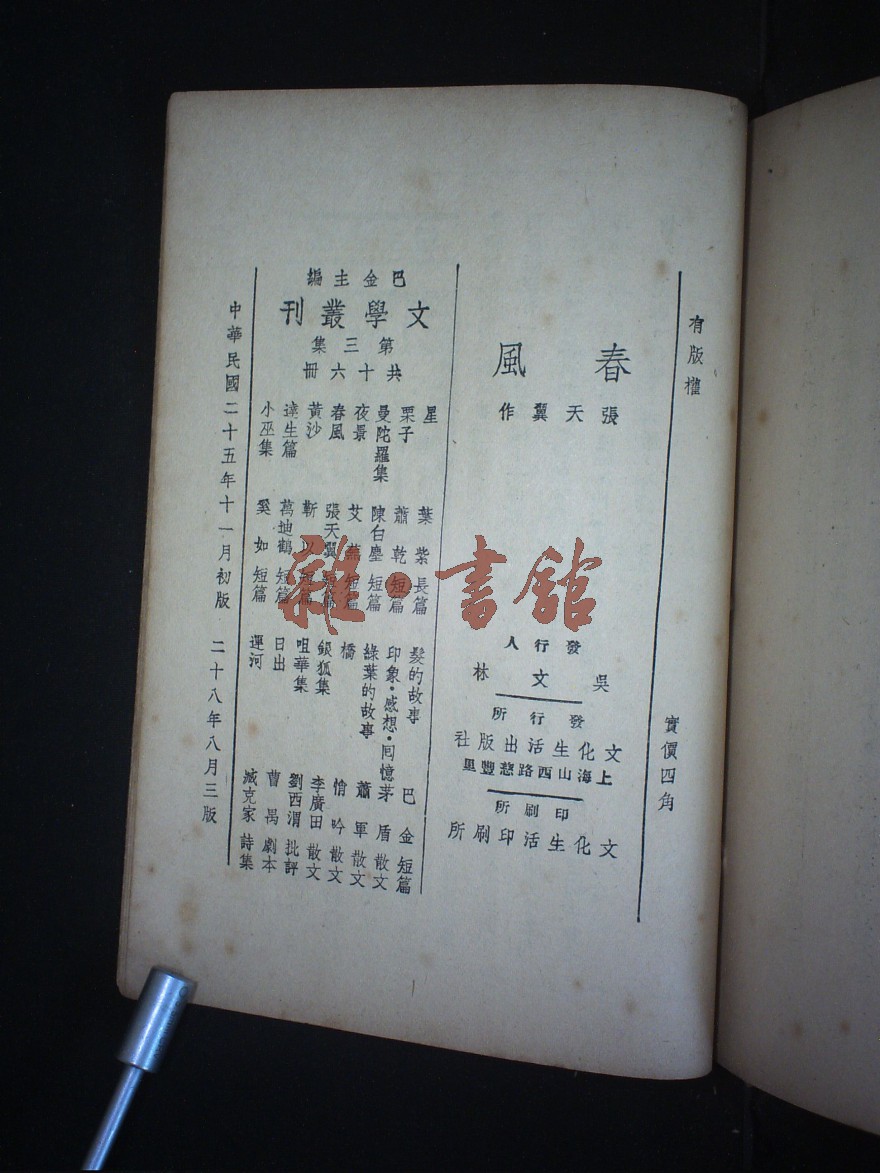 有版權
實價四角
春風
張天翼作
發行人
吳文林
發行所
文化生活出版社
上海山西路慈豐里
印刷所
文化生活印刷所
巴金主編
文學叢刊
第三集
共十六冊
星 葉紫 長篇
栗子 蕭乾 短篇
曼陀羅集 陳白塵 短篇
夜景 艾蕪 短篇
春風 張天翼 短篇
黃沙 靳以 短篇
達生篇 萬迪鶴 短篇
小巫集 奚如 短篇
髮的故事 巴金 短篇
印象·感想·回憶 茅盾 散文
綠葉的故事 蕭軍 散文
橋 悄吟 散文
銀狐集 李廣田 散文
咀華集 劉西渭 批評
日出 曹禺 劇本
運河 臧克家 詩集
中華民國二十五年十一月初版 二十八年八月三版
雜·書館